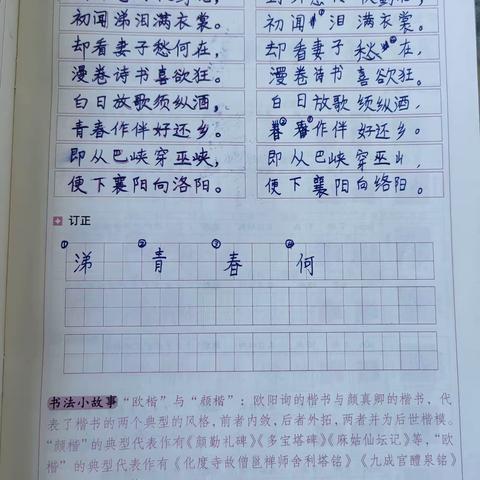 初闻涕泪满衣裳。 初闻① 泪 满衣裳。
却看妻子愁何在, 却看妻子 愁④在,
漫卷诗书喜欲狂。 漫卷诗书 喜欲狂。
白日放歌须纵酒, 白日放歌 须纵酒,
青春作伴好还乡。 ②③作伴 好还乡。
即从巴峡穿巫峡, 即从巴峡 穿巫山,
便下襄阳向洛阳。 便下襄阳向络阳。
订正
① ② ③ ④
涕 青 春 何
书法小故事 “欧楷”与“颜楷”:欧阳询的楷书与颜真卿的楷书,代
表了楷书的两个典型的风格,前者内敛,后者外拓,两者并为后世楷模。
“颜楷”的典型代表作有《颜勤礼碑》《多宝塔碑》《麻姑仙坛记》等,“欧
楷”的典型代表作有《化度寺故僧邕禅师舍利塔铭》《九成宫醴泉铭》